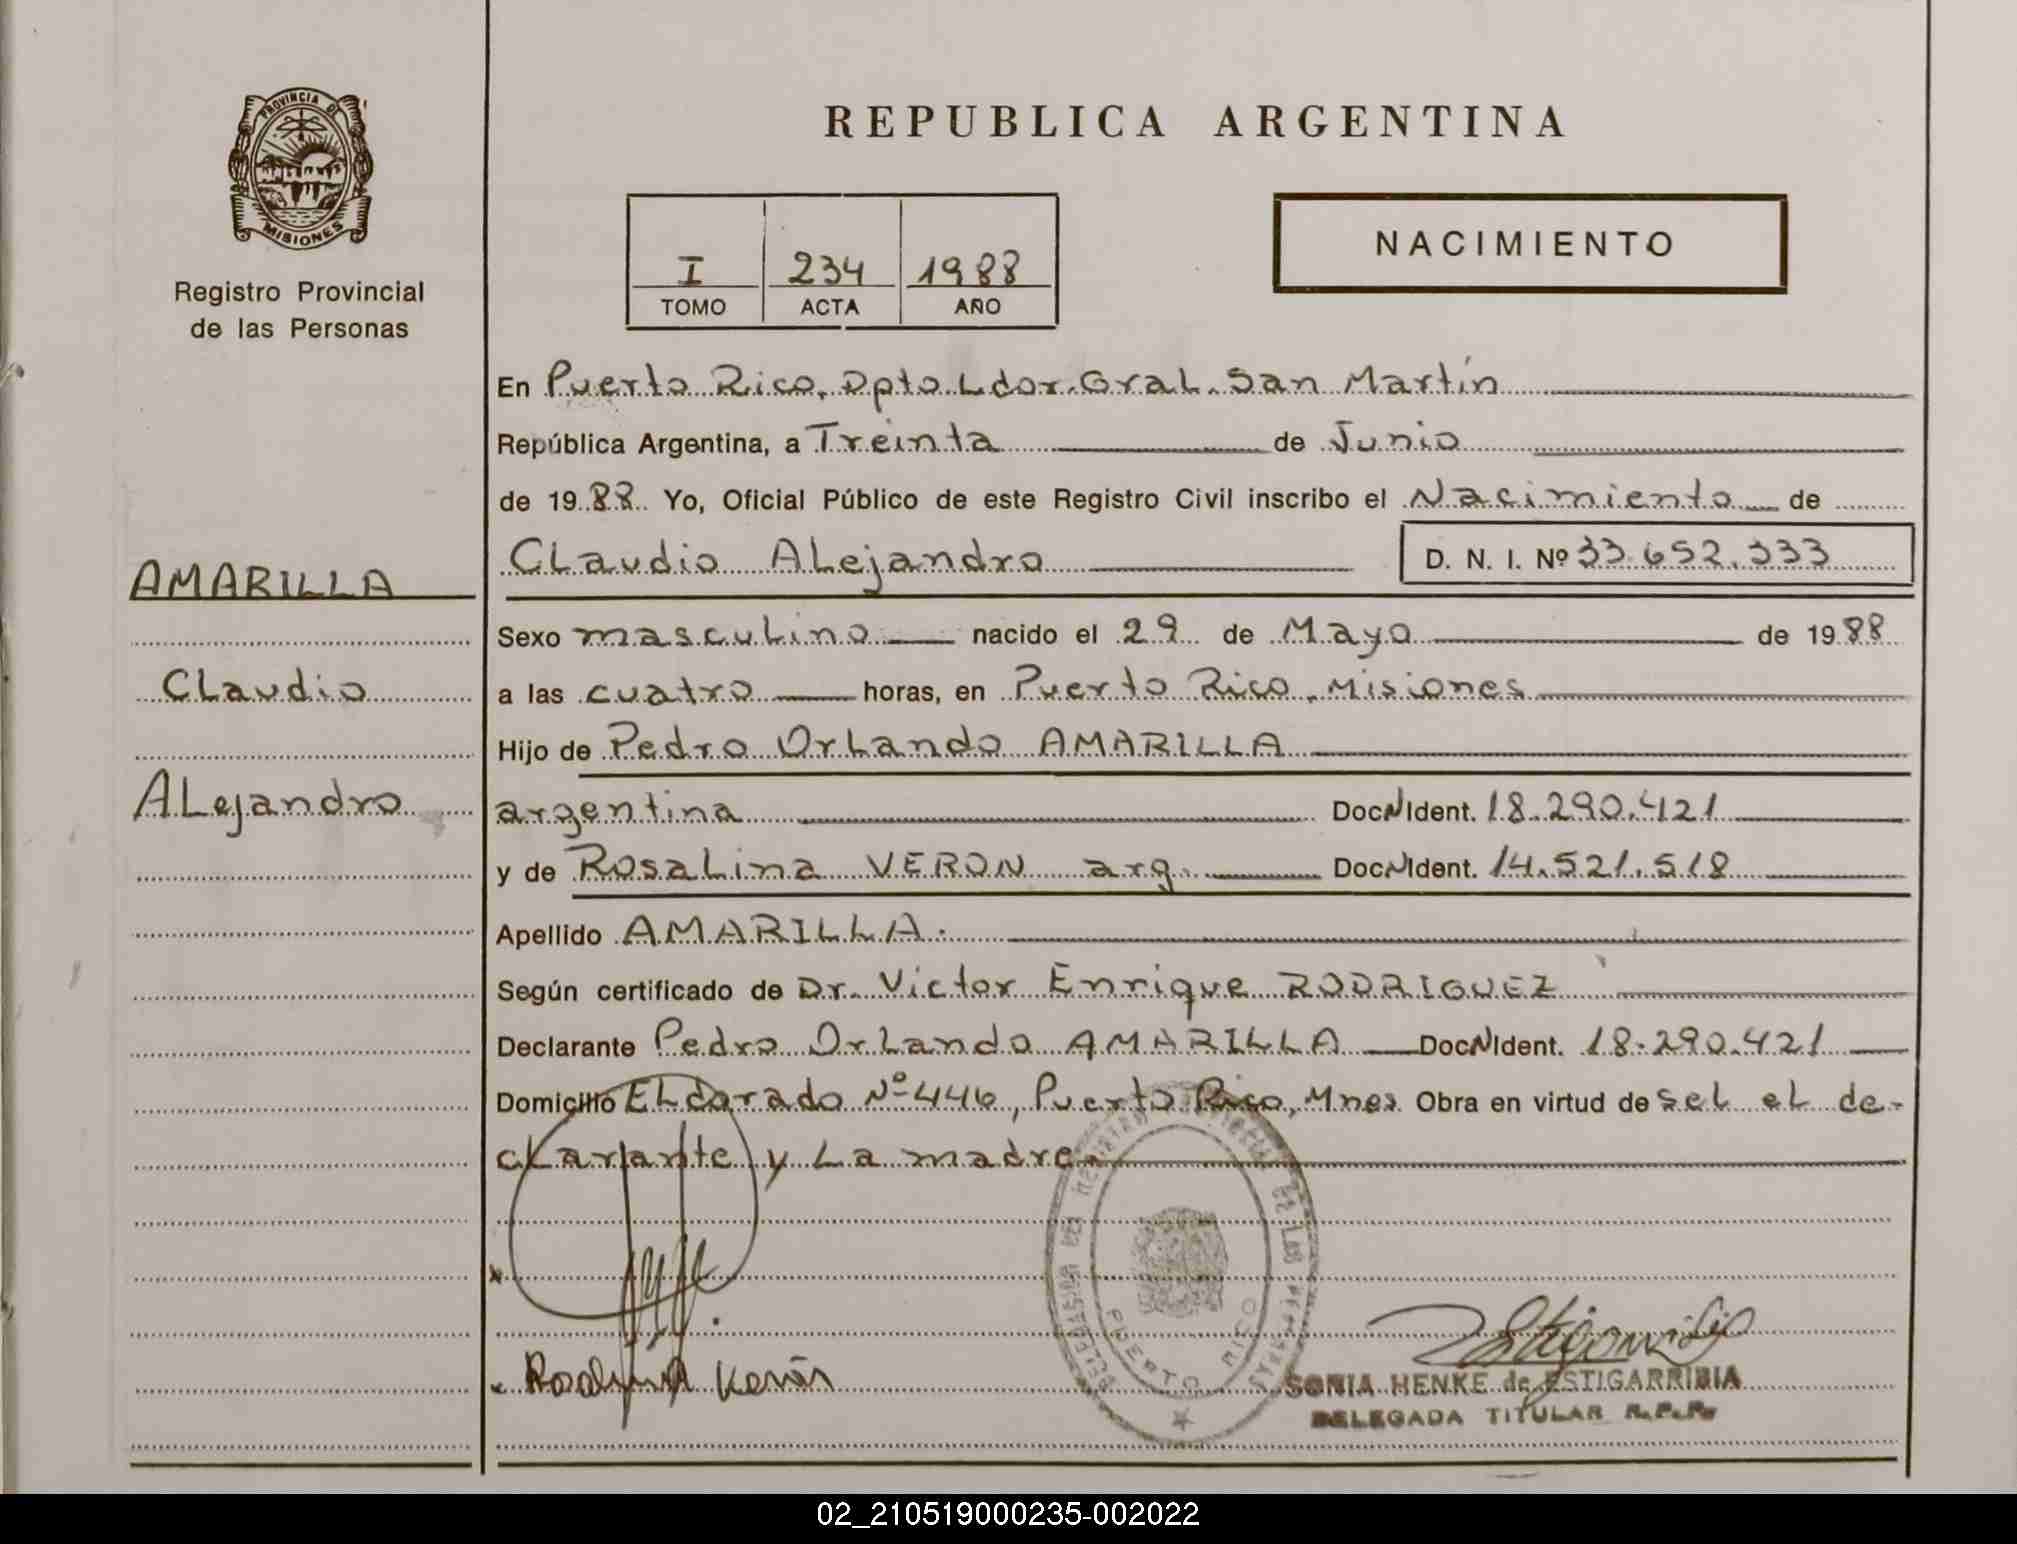 PROVINCIA DE
MISIONES
Registro Provincial
de las Personas
AMARILLA
Claudio
Alejandro
REPUBLICA ARGENTINA
I 234 1988
TOMO ACTA AÑO
NACIMIENTO
En Puerto Rico, Dpto. Ldor. Gral. San Martín
República Argentina, a Treinta de Junio
de 1988 Yo, Oficial Público de este Registro Civil inscribo el Nacimiento de
Claudio Alejandro D. N. I. Nº 33.652.333
Sexo masculino nacido el 29 de Mayo de 1988
a las cuatro horas, en Puerto Rico, Misiones
Hijo de Pedro Orlando AMARILLA
argentina Doc N Ident. 18.290.421
y de Rosalina VERON arg. Doc N Ident. 14.521.518
Apellido AMARILLA.
Según certificado de Dr. Victor Enrique RODRIGUEZ
Declarante Pedro Orlando AMARILLA Doc N Ident. 18.290.421
Domicilio Eldorado Nº 446, Puerto Rico, Mnes Obra en virtud de sel el de-
clarante y la madre.
DELEGACION DEL REGISTRO PROVINCIAL DE LAS PERSONAS
PUERTO RICO
SONIA HENKE de ESTIGARRIBIA
DELEGADA TITULAR R.P.P.
02_210519000235-002022